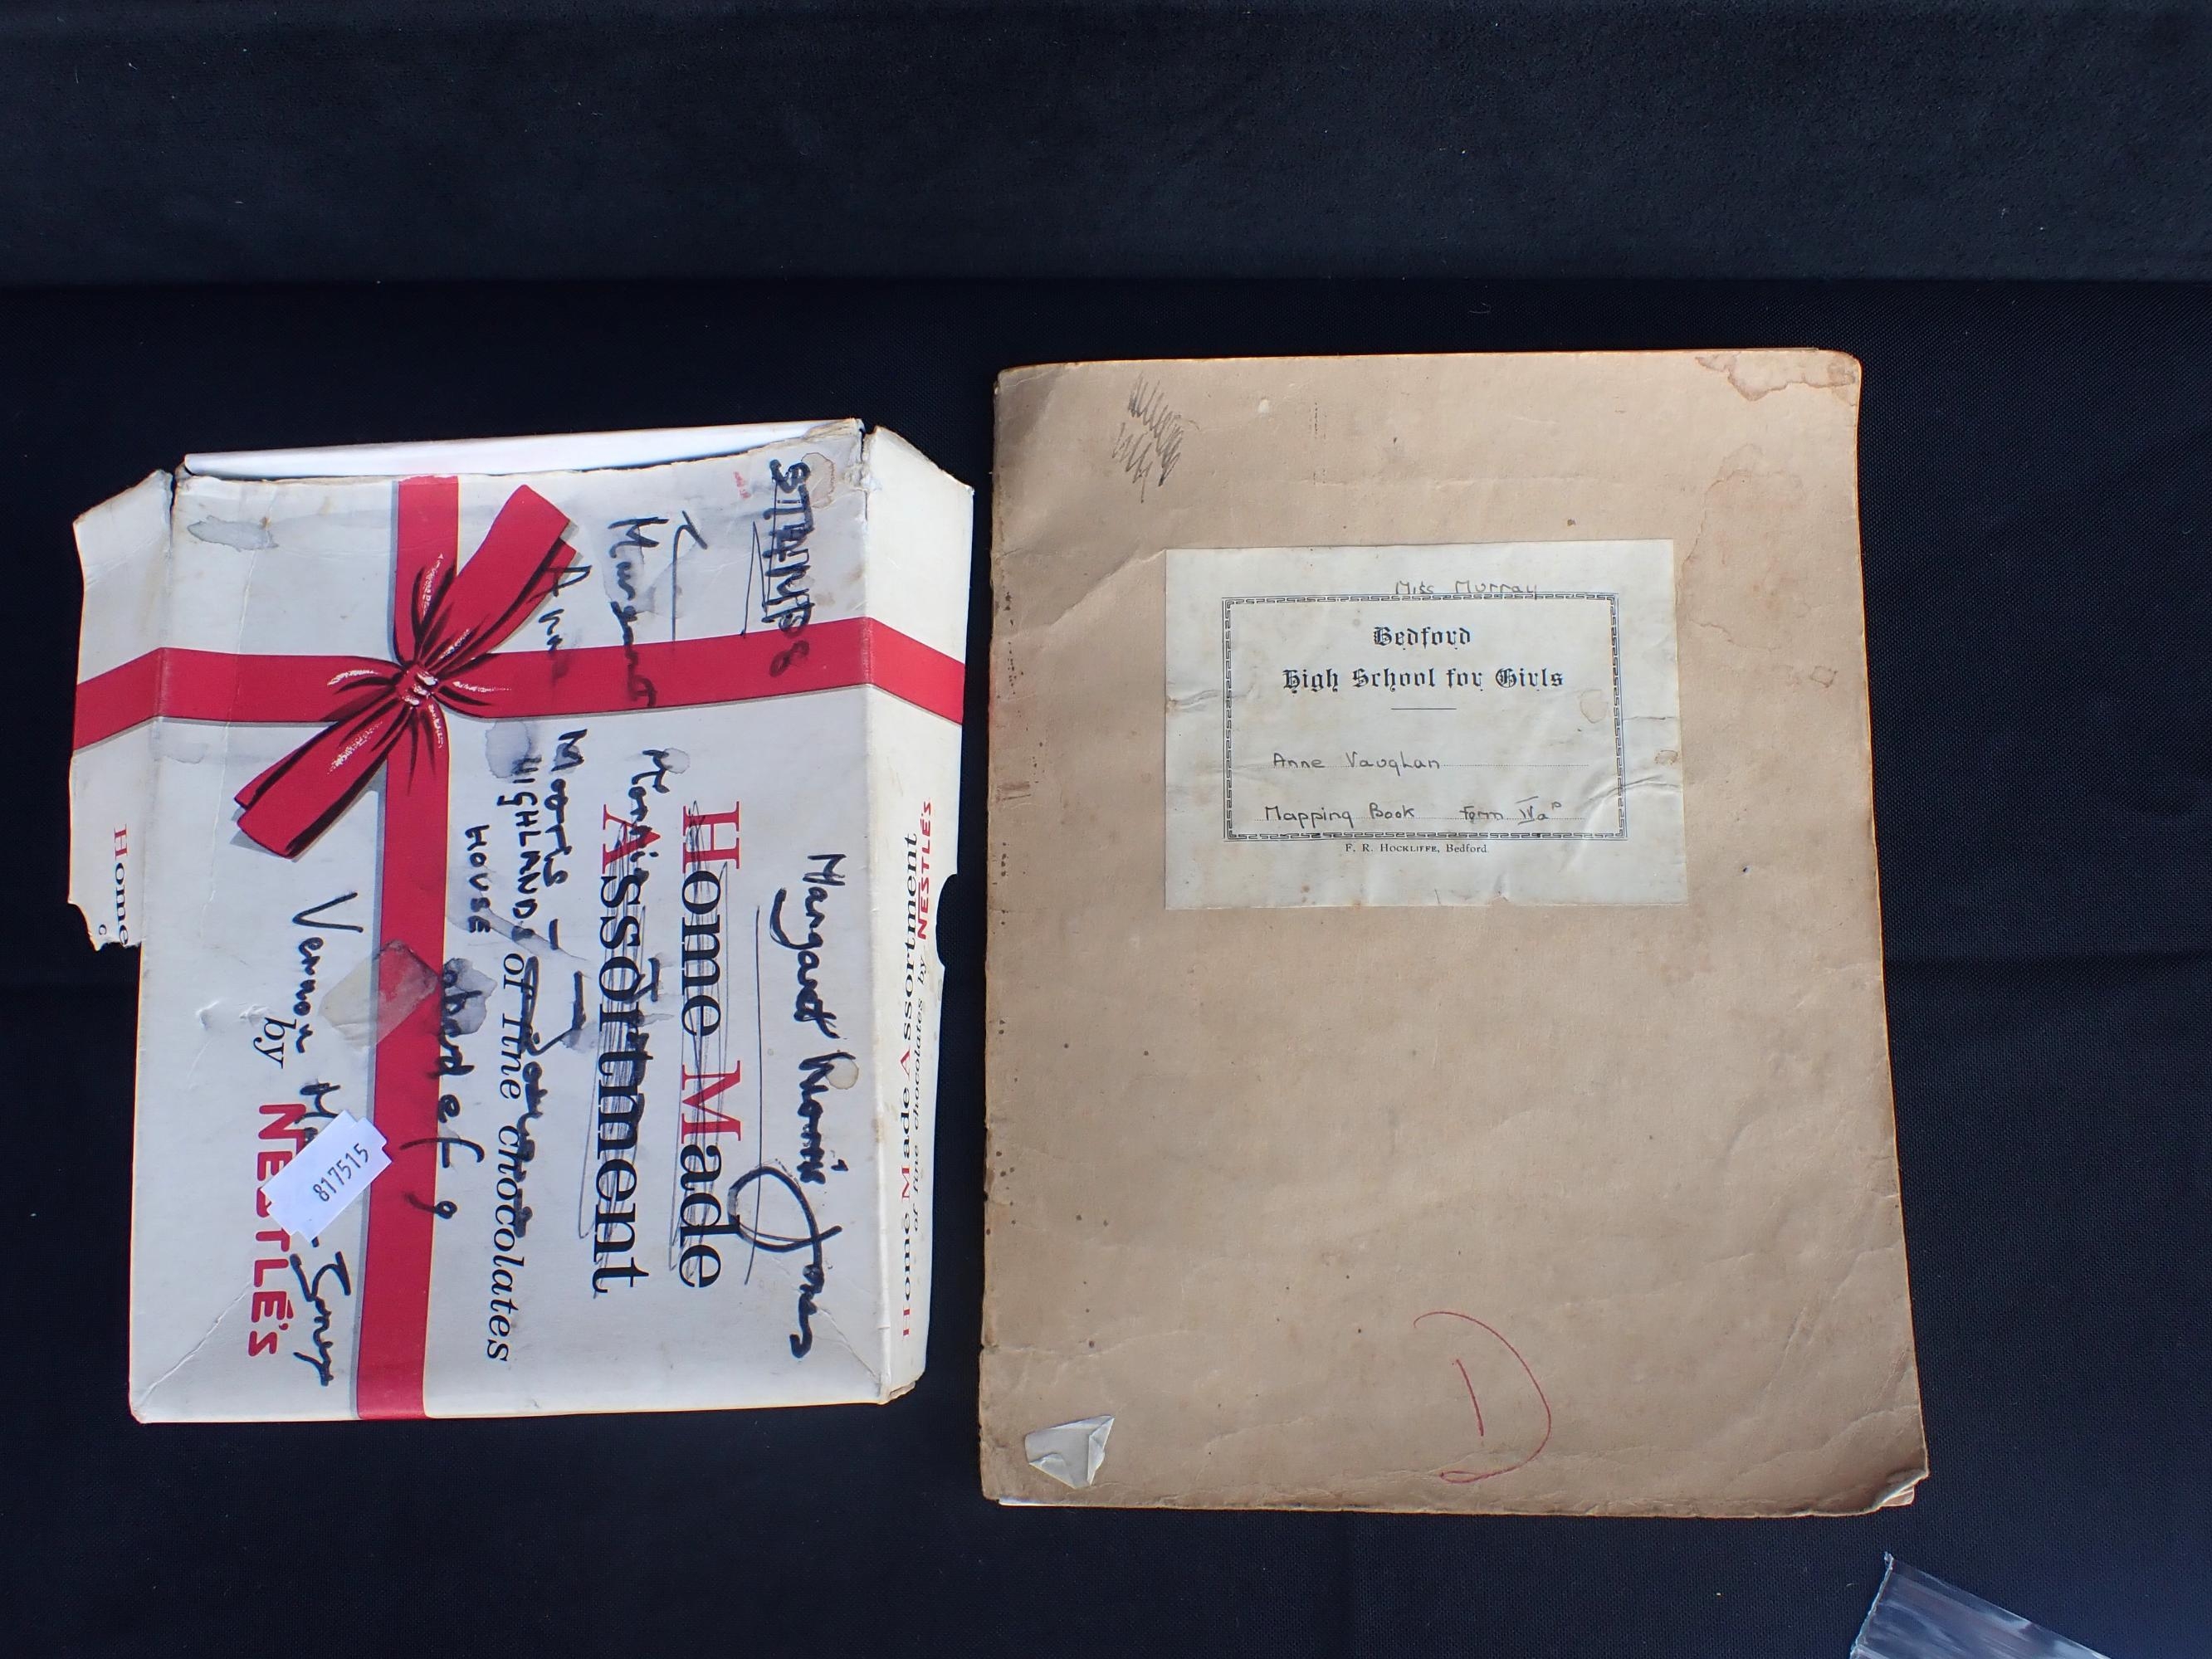 STAMPS
Margaret
Anna
Margaret Morris Jones
Home Made
Assortment
of fine chocolates
by NESTLÉ'S
Moorfs
HIGHLANDS
HOUSE
abcdef g
Vernon
Jones
817515
Home Made Assortment
of fine chocolates by NESTLÉ'S
Home
Miss Murray
Bedford
High School for Girls
Anne Vaughan
Mapping Book Form IVa P
F. R. HOCKLIFFE, Bedford
D